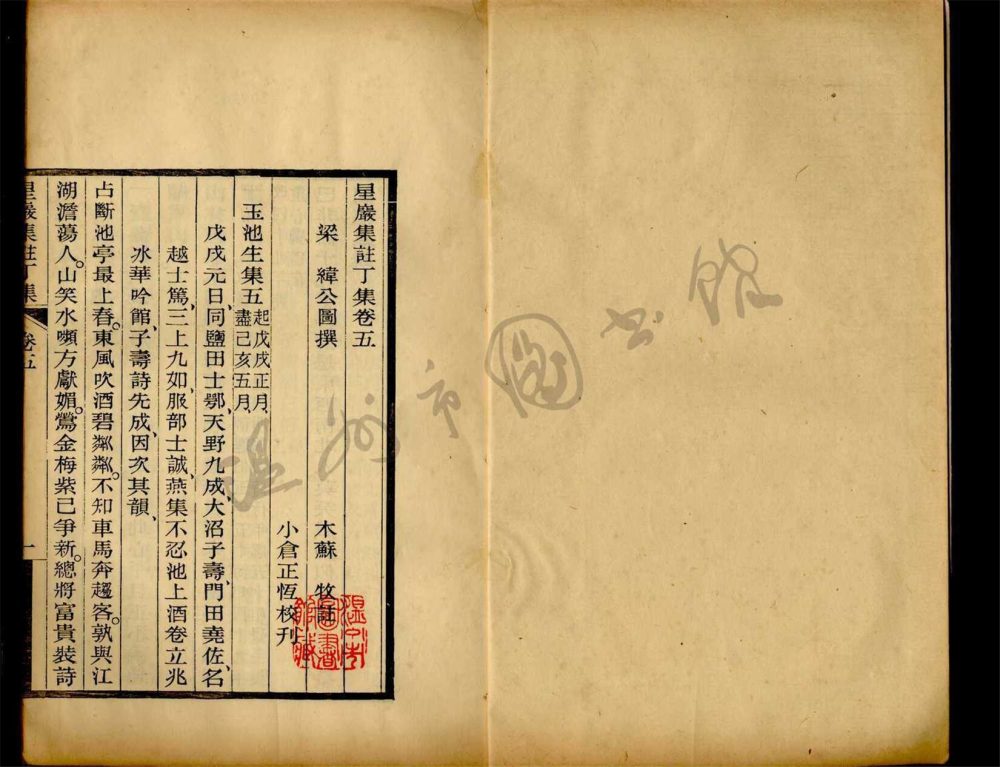 星巖集註丁集卷五
梁　緯公圖撰　木蘇　牧註
小倉正恆校刊
玉池生集五 起戊戌正月、
盡己亥五月、
戊戌元日、同鹽田士鄂、天野九成、大沼子壽、門田堯佐、名
越士篤、三上九如、服部士誠、燕集不忍池上酒卷立兆
氷華吟館、子壽詩先成、因次其韻、
占斷池亭最上春。東風吹酒碧粼粼。不知車馬奔趨客。孰與江
湖澹蕩人。山笑水嚬方獻媚。鶯金梅紫已爭新。總將富貴裝詩
星巖集註丁集　卷五　一
溫州市
圖書
館藏
温州市圖书館